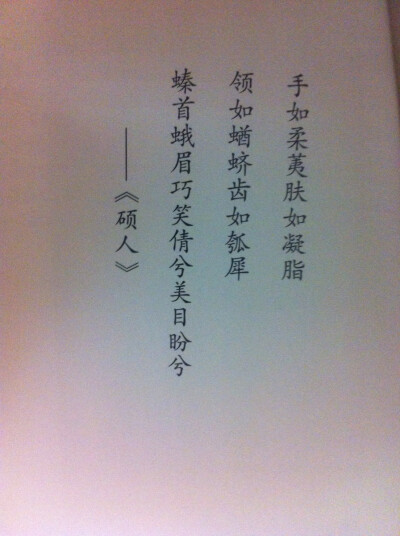 手如柔荑肤如凝脂
领如蝤蛴齿如瓠犀
螓首蛾眉巧笑倩兮美目盼兮
——《硕人》